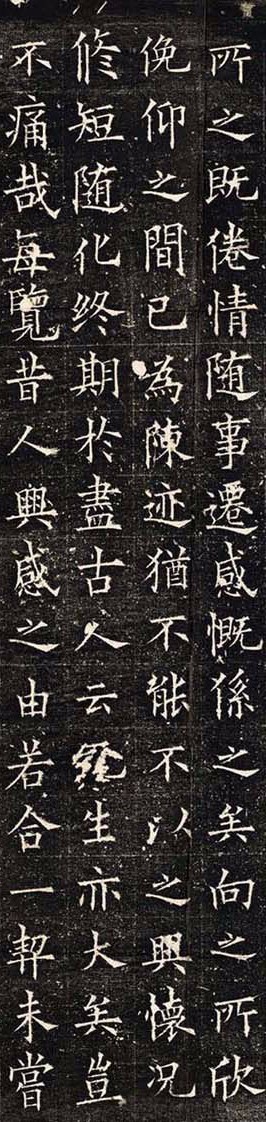 所之既倦情随事遷感慨係之矣向之所欣
俛仰之間已為陳迹猶不能不以之興懷况
修短随化终期於盡古人云死生亦大矣豈
不痛哉每覽昔人興感之由若合一契未嘗